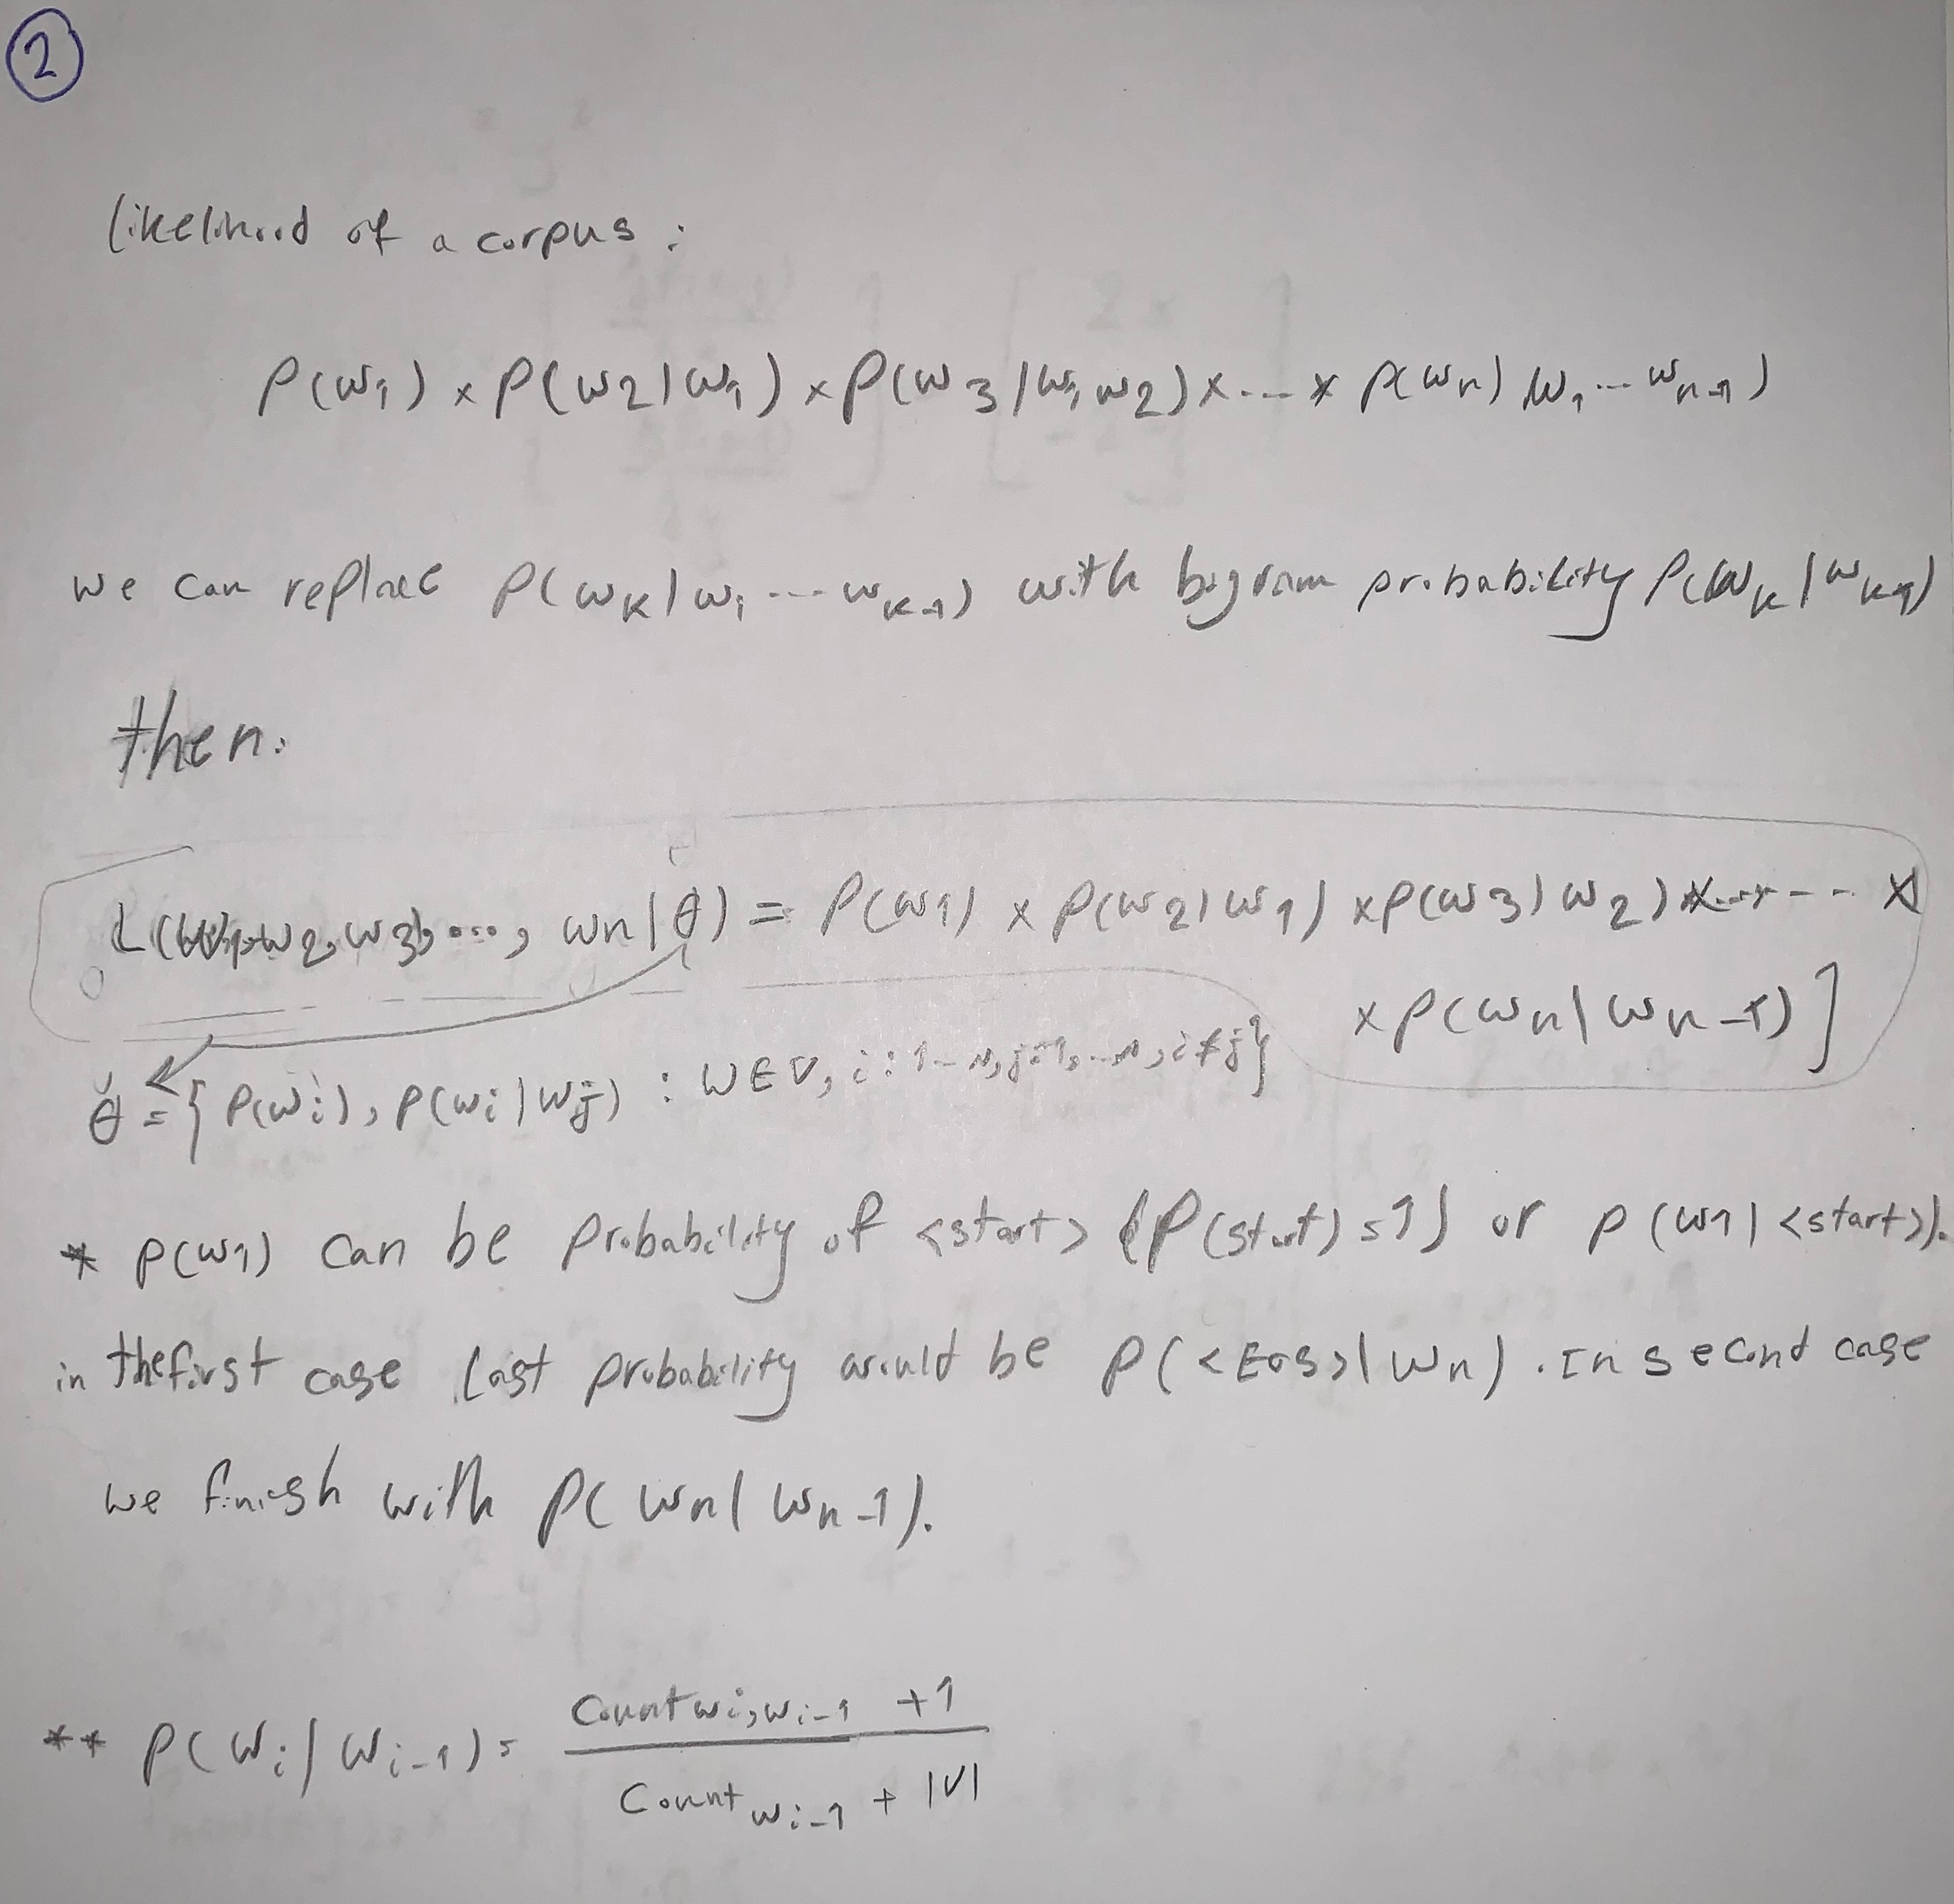 2
likelihood of a corpus :
P(w1) × P(w2|w1) × P(w3|w1 w2) × ... × P(wn) w1 ... wn-1)
we can replace P(wk|w1 ... wk-1) with bigram probability P(wk|wk-1)
then:
L(w1, w2, w3, ..., wn|θ) = P(w1) × P(w2|w1) × P(w3|w2) × ... ×
× P(wn|wn-1)]
θ = { P(wi), P(wi|wj) : w∈V, i: 1-n, j=1, -n, i≠j}
* P(w1) can be probability of <start> (P(start) = 1) or P(w1|<start>).
in the first case last probability would be P(<EOS>|wn). In second case
we finish with P(wn|wn-1).
** P(wi|wi-1) = Count wi,wi-1 +1
Count wi-1 + |V|